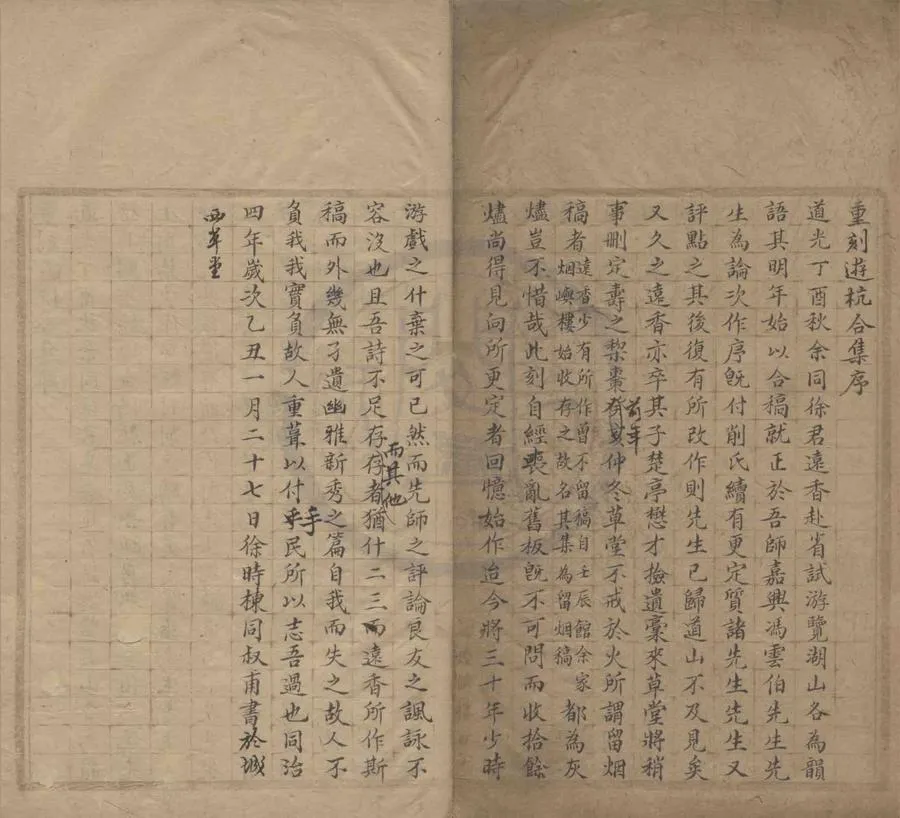 重刻遊杭合集序
道光丁酉秋余同徐君遠香赴省試游覽湖山各為韻
語其明年始以合稿就正於吾師嘉興馮雲伯先生先
生為論次作序既付削氏續有更定質諸先生先生又
評點之其後復有所改作則先生已歸道山不及見矣
又久之遠香亦卒其子楚亭懋才撿遺稾來草堂將稍
事刪定壽之梨棗前年仲冬草堂不戒於火所謂留烟
稿者遠香少有所作曾不留稿自壬辰館余家
烟嶼樓始收存之故名其集為留烟稿都為灰
燼豈不惜哉此刻自經喪亂舊板既不可問而收拾餘
燼尚得見向所更定者回憶始作迨今將三十年少時
游戲之什棄之可已然而先師之評論良友之諷詠不
容沒也且吾詩不足存存者猶什二三而其他遠香所作斯
稿而外幾無孑遺幽雅新秀之篇自我而失之故人不
負我我實負故人重葺以付手民所以志吾過也同治
四年歲次乙丑一月二十七日徐時棟同叔甫書於城
西草堂